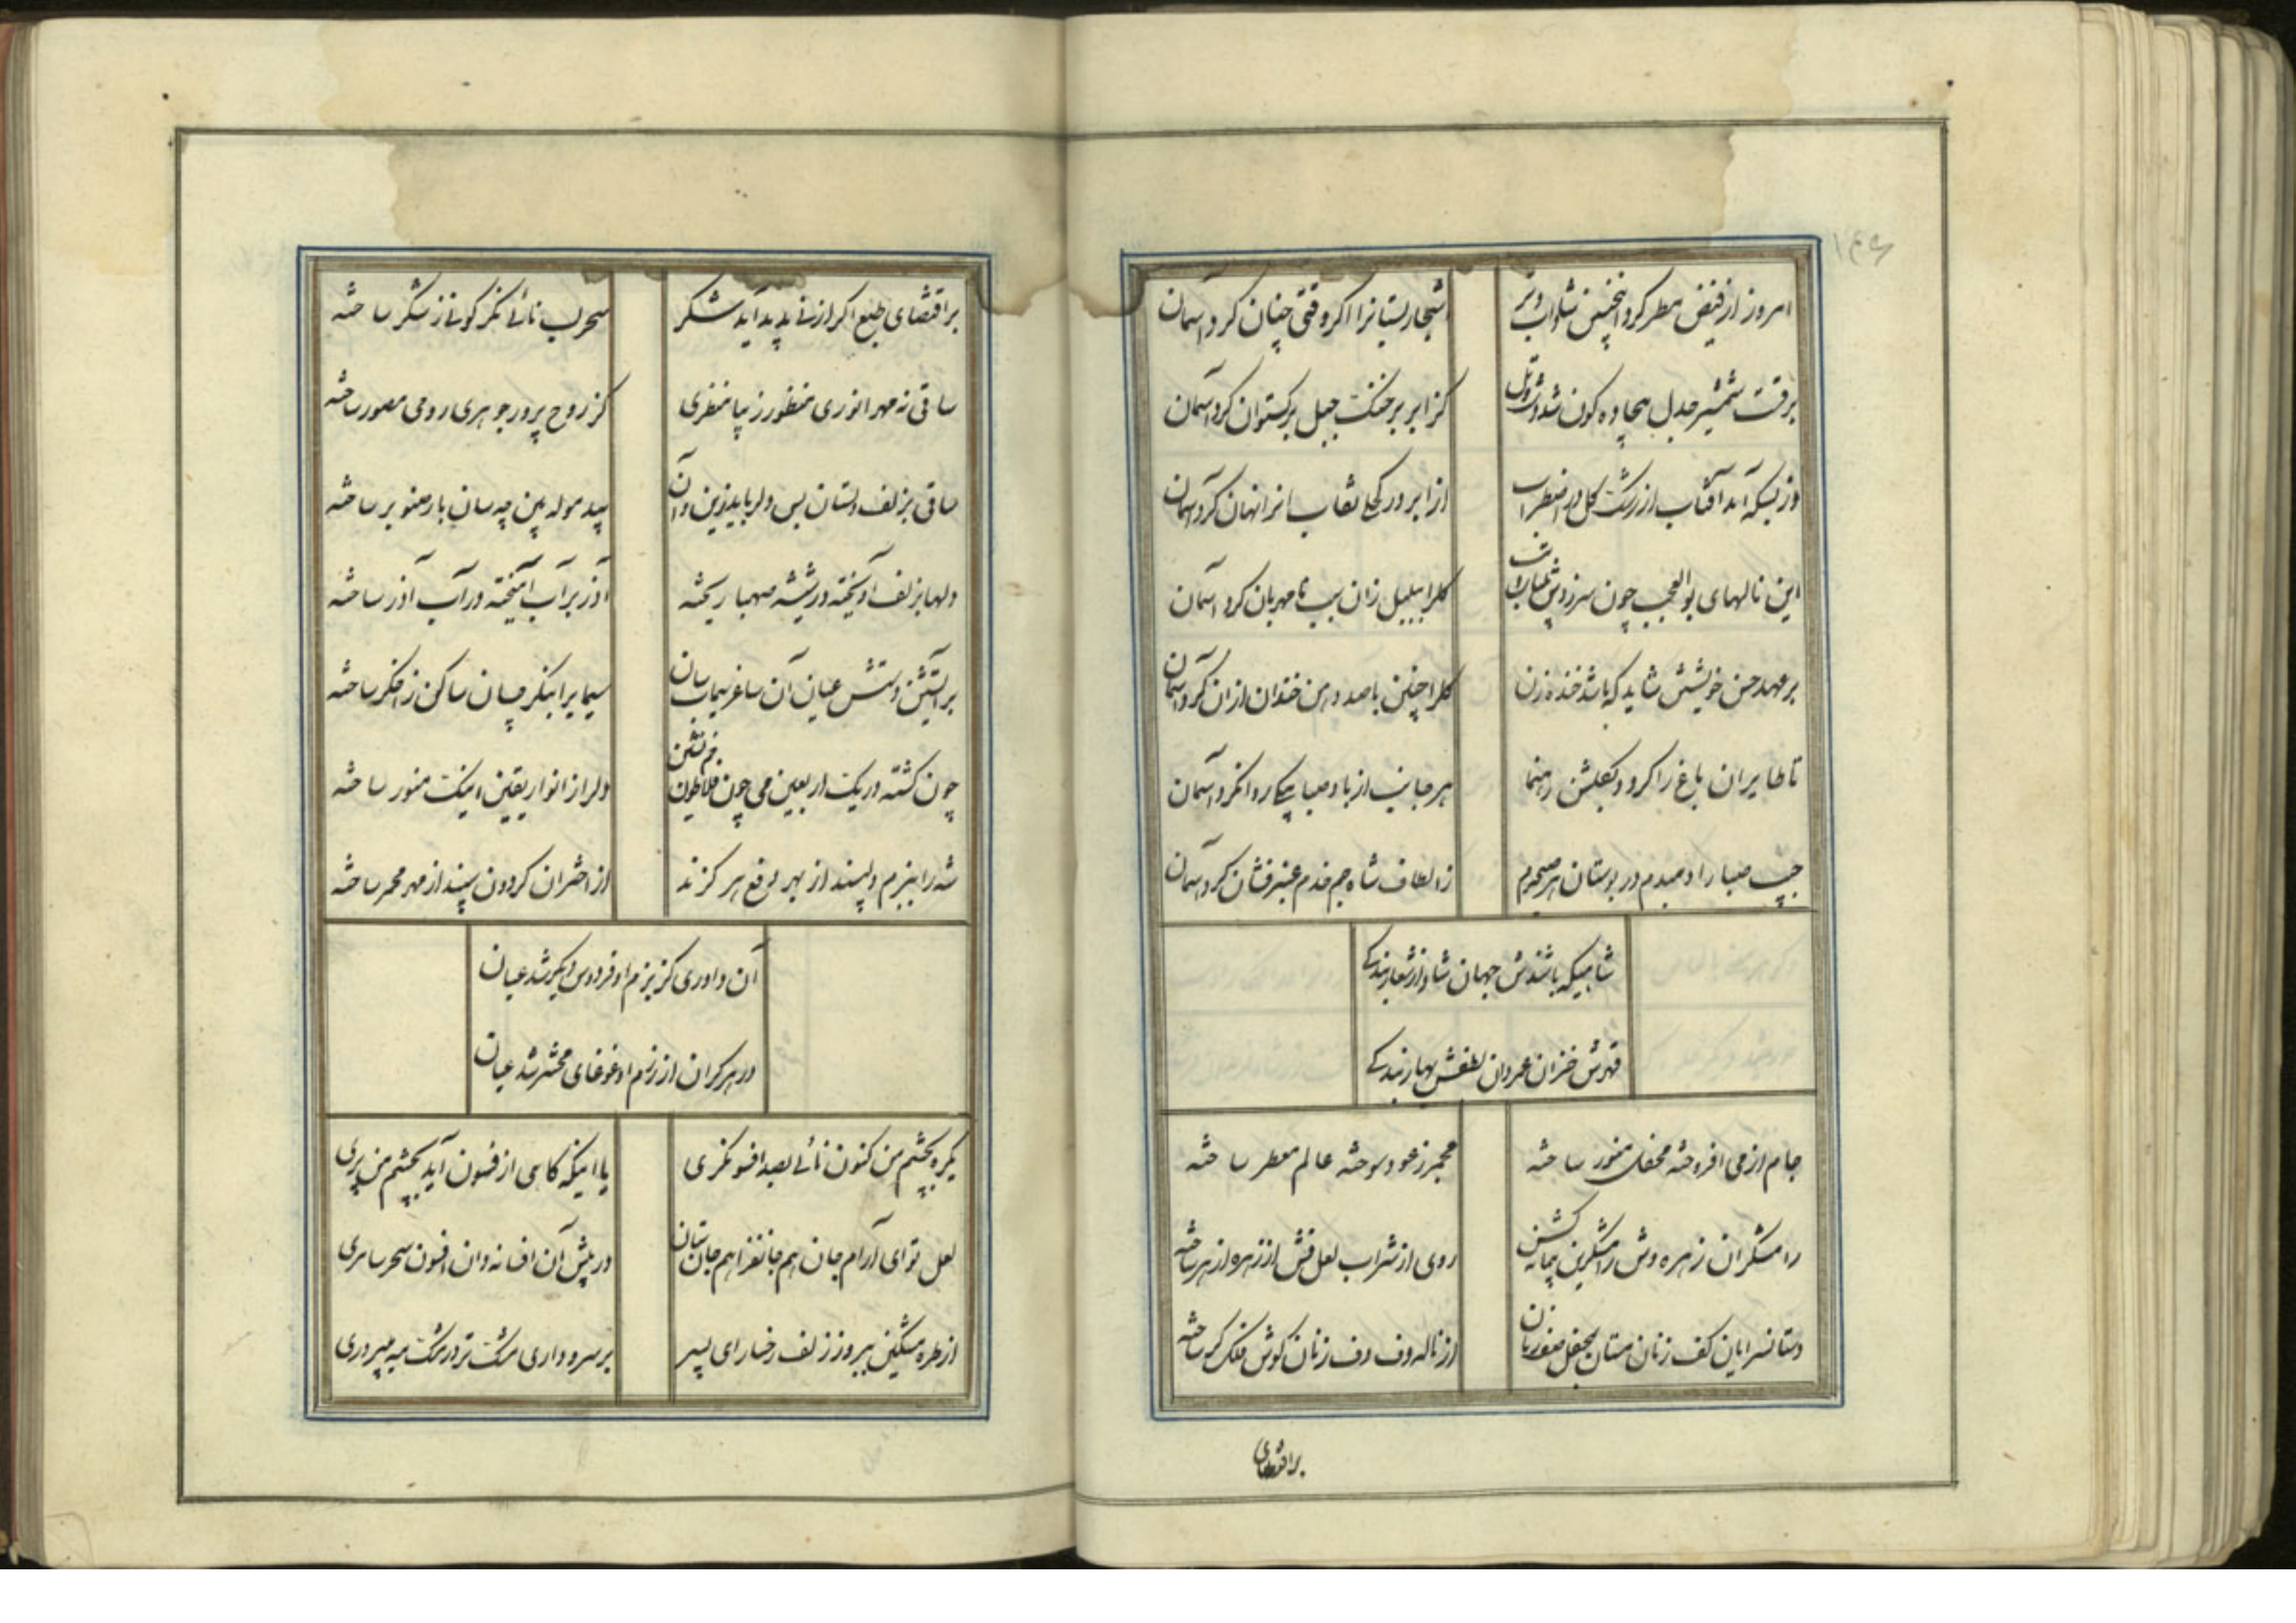 ۱۴۶
امروز از فیض مطر کرد اینچنین شاداب و تر
اشجار بستانرا اکر وقتی چنان کرد آسمان
برقست شمشیر جدل هیجا وه کون شد دشت و تل
کز ابر بر خنکت جبل برکستوان کرد آسمان
وز بسکه آمد آفتاب از رشک کل در اضطراب
از ابر در کحلی نقاب انرا نهان کرد آسمان
این نالهای بوالعجب چون سر زدش
کلرا ببلبل زان سبب نامهربان کرد آسمان
بر عهد حسن خویشتن شاید که باشد خنده زن
کلرا چنین با صد دهن خندان ازان کرد آسمان
تا طایران باغ را کردد بکلشن رهنما
هر جانب از باد صبا پیکی روانکرد آسمان
جیب صبا را دمبدم در بوستان هر صبحدم
ز الطاف شاه جم خدم عنبرفشان کرد آسمان
شاهیکه باشندش جهان شاد از شعار بندکی
قهرش خزان مهردان لطفش بهار زندکی
جام از می افروخته محفل منور ساخته
مجمر ز عود سوخته عالم معطر ساخته
رامشکران زهره وش رامشکزین پیمانه کش
روی از شراب لعل فش از زهره ازهر ساخته
دستانسرایان کف زنان مستان بمحفل صف زنان
از ناله دف دف زنان کوش فلک کر ساخته
براقتضای
براقتضای طبع اکر از نی پدید آید شکر
سحر لب نائی نکر کو نی ز شکر ساخته
ساقی نه مهر انوری منظور زیبا منظری
کز روح پرور جوهری روحی مصور ساخته
ساقی بزلف دلستان بس دلرباید زین و آن
بید موله بین چه سان بار صنوبر ساخته
دلها بزلف آویخته در شیشه صهبا ریخته
آذر بر آب آمیخته در آب آذر ساخته
بر آتشین دستش عیان آن ساغر سیماب سان
سیمابرا بنکر چسان ساکن ز اخکر ساخته
چون کشته در یک اربعین می چون فلاطون خم نشین
دلرا ز انوار یقین اینک منور ساخته
شه را ببزم دلپسند از بهر دفع هر کزند
از اختران کردون سپند از مهر مجمر ساخته
آن داوری کز بزم او فردوس دیکر شد عیان
در هر کران از رزم او غوغای محشر شد عیان
یکره بچشم من کنون نائی بصد افسونکری
یا اینکه کاهی از فسون آید بچشم من پری
لعل تو ای آرام جان هم جانفزا هم جان ستان
در پیش آن افسانه دان افسون سحر سامری
از طره مشکین ببر وز زلف رخسار ای پسر
بر سرو داری مشک تر در مشک مه میپروری